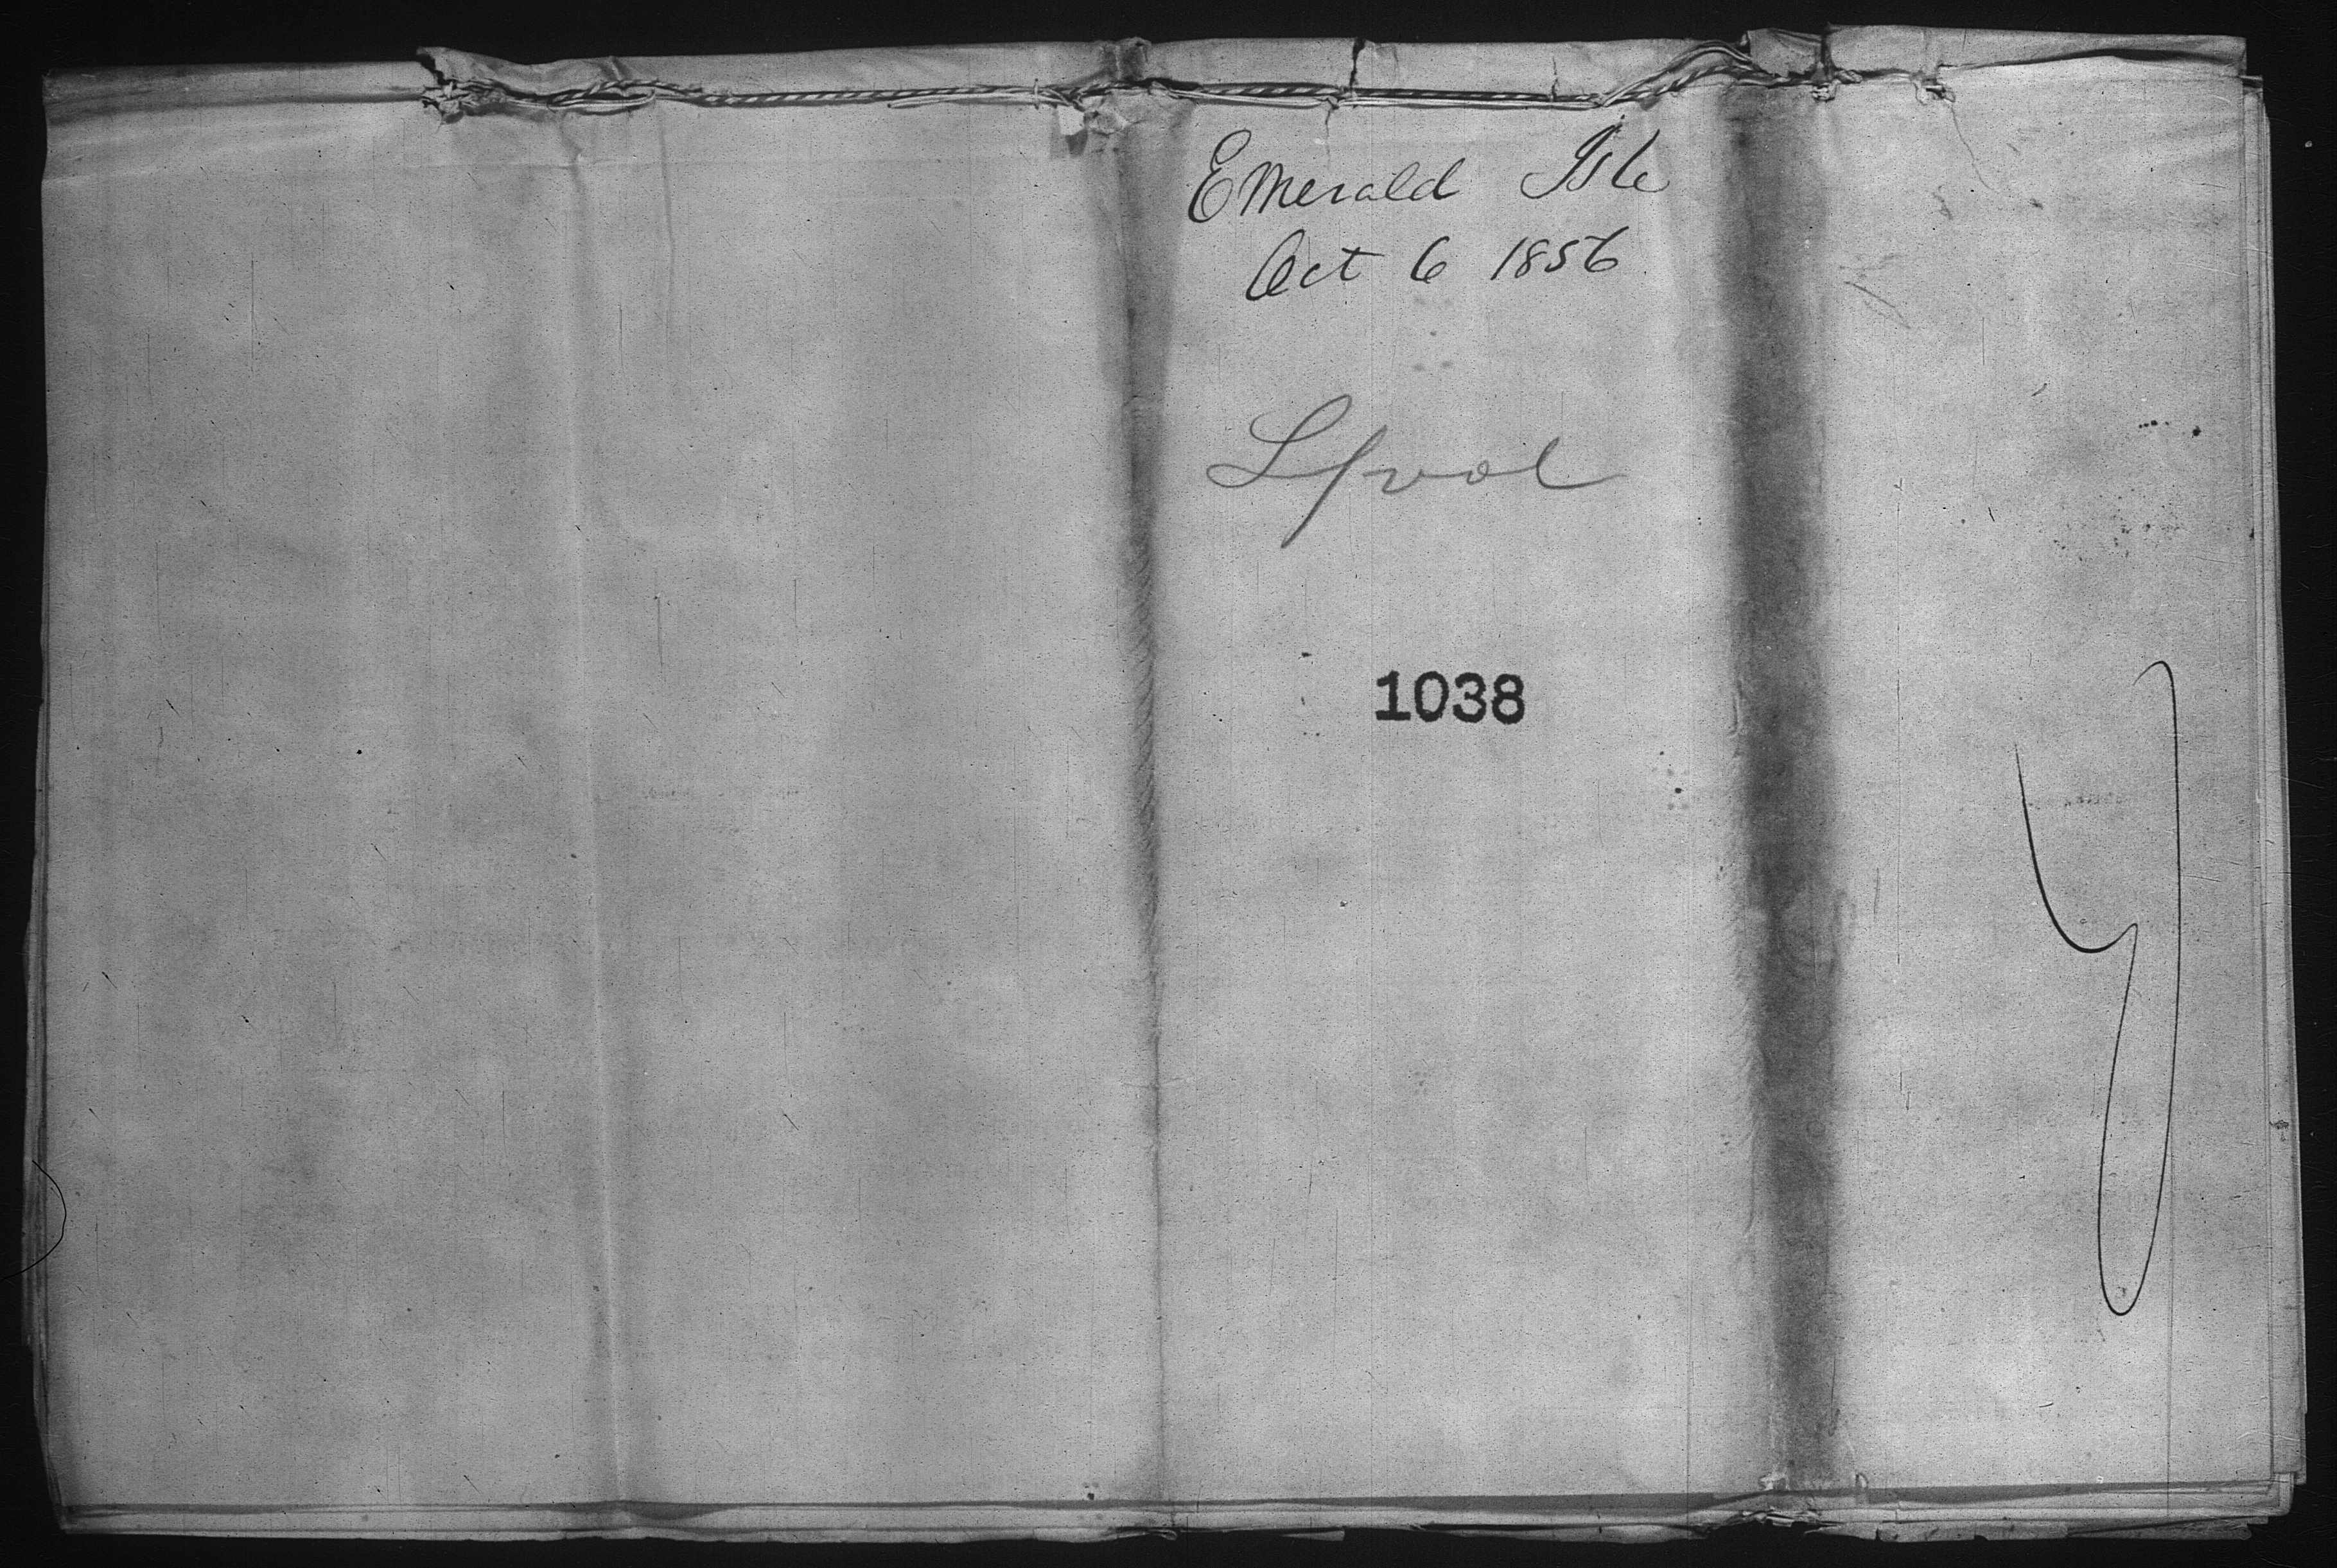 Emerald Isle
Oct 6 1856
Lpool
1038